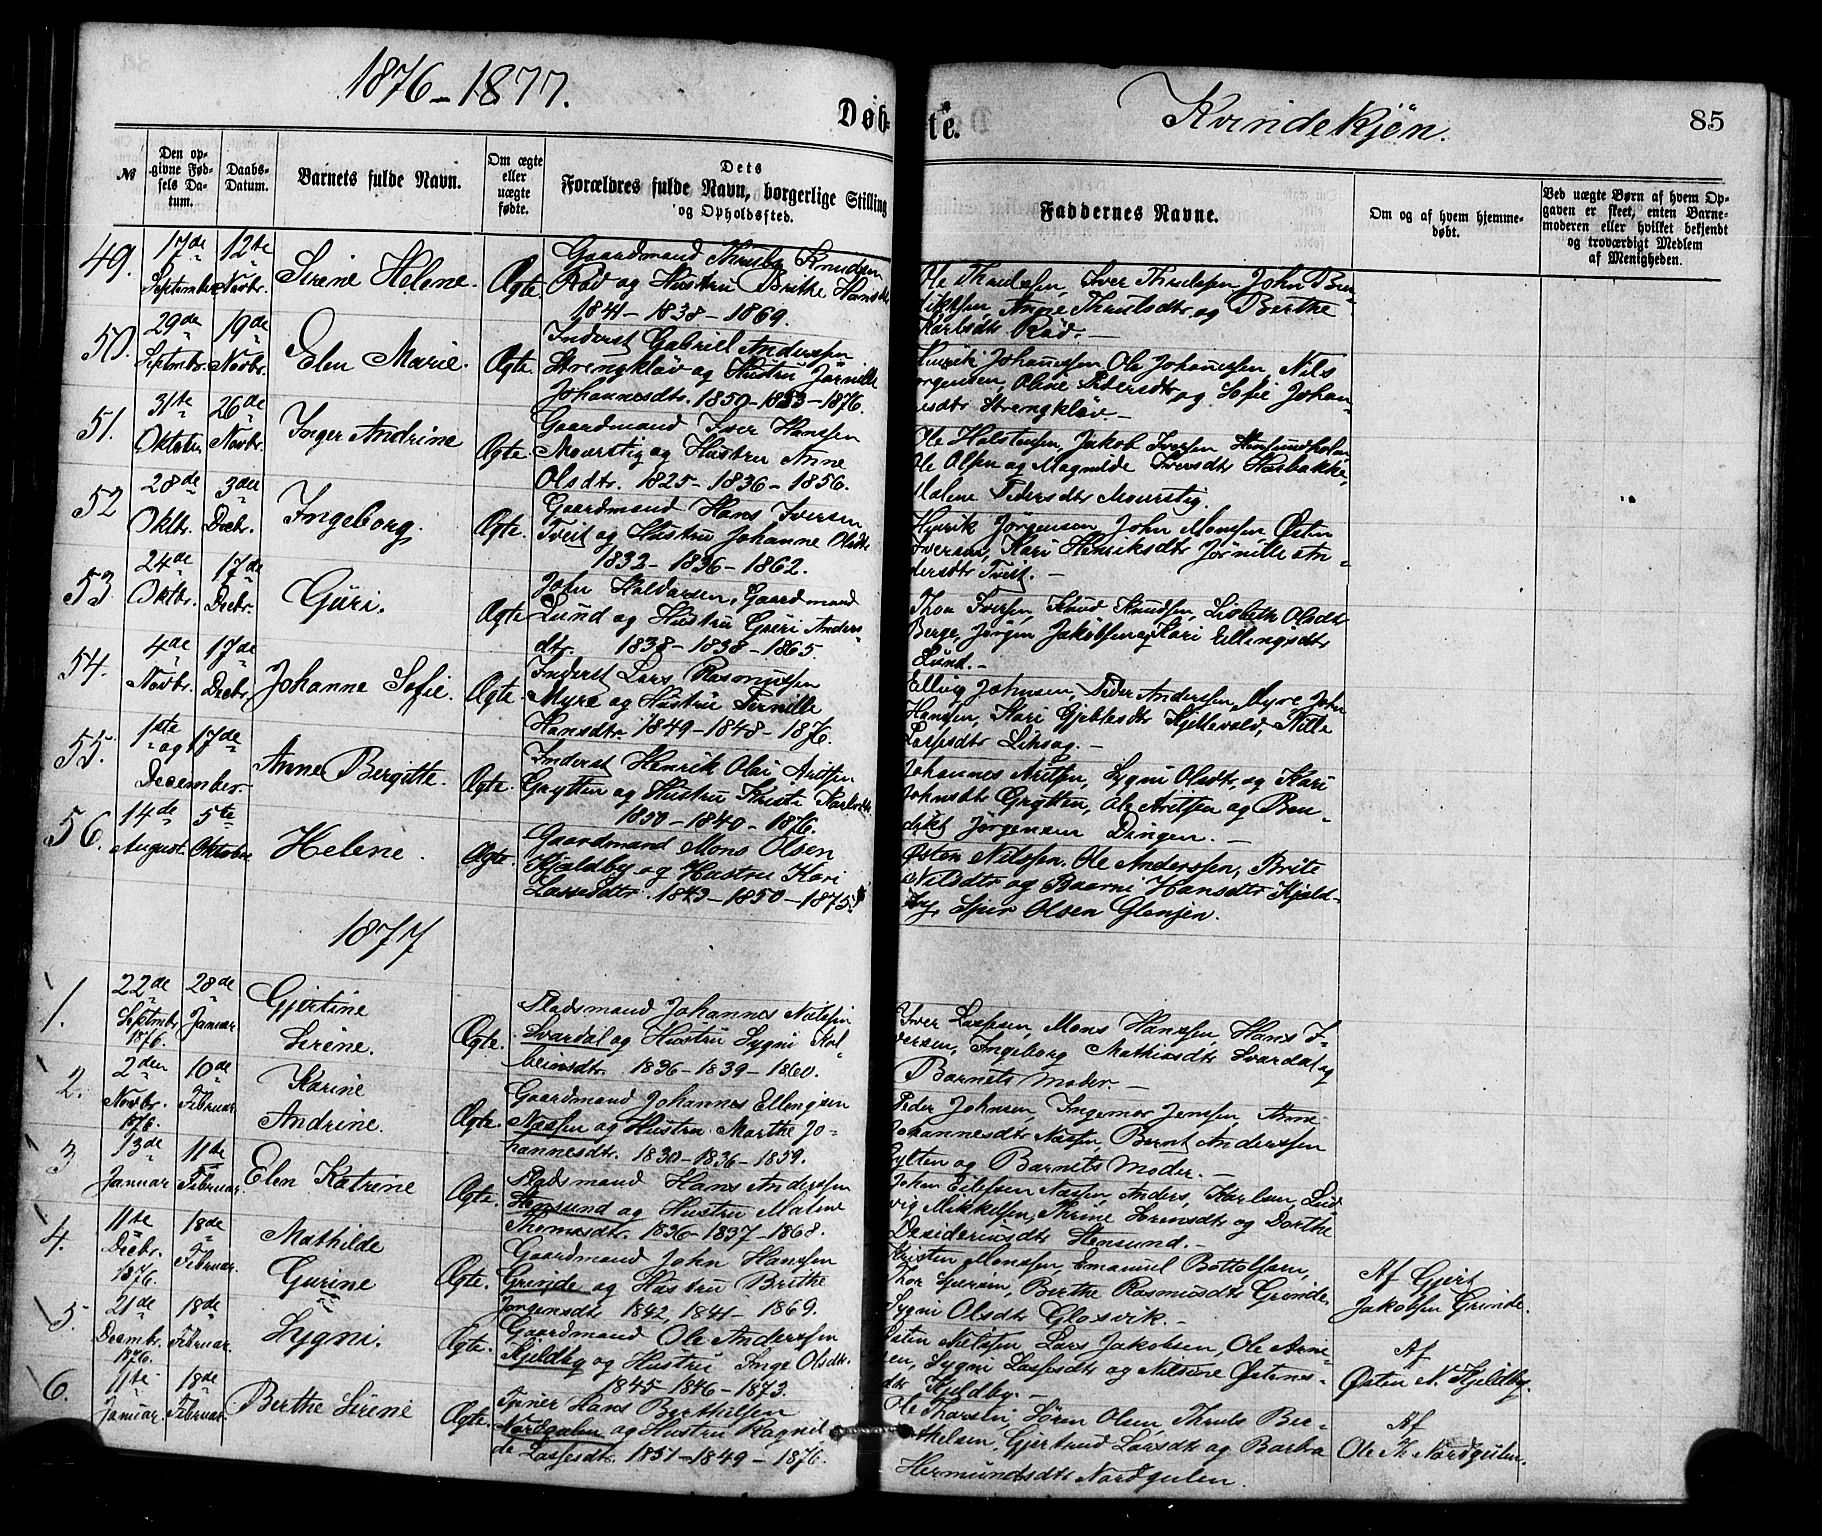 1876-1877.
Døb-
te.
Kvindekjøn.
85
№
Den op-
givne Fød-
sels Da-
tum.
Daabs-
Datum.
Barnets fulde Navn.
Om ægte
eller
uægte
fødte.
Dets
Forældres fulde Navn, borgerlige Stilling
og Opholdsfted.
Faddernes Navne.
Om og af hvem hjemme-
døbt.
Ved uægte Børn af hvem Op-
gaven er skeet, enten Barne-
moderen eller hvilket bekjendt
og troværdigt Medlem
af Menigheden.
49.
17de September
12te Novbr.
Sirine Helene.
Ægte.
Gaardmand Knudsen
og Hustru Brithe Hansdtr
1841 - 1838 - 1869.
Ole Iver John Ben-
Anne og Berthe
50.
29de Septmbr.
19de Novbr.
Elen Marie.
Ægte.
Inderst Gabriel Anderssen
Strengkløv og Hustru Jørnille
Johannesdtr. 1850 - 1853 - 1876.
Henrik Johannessen, Ole Johannessen, Nils
Jørgensen, Oline Pedersdtr og Sofie Johan-
nesdtr Strengkløv.-
51.
31te Oktober
26de Novbr.
Inger Andrine
Ægte.
Gaardmand Iver Hanssen
Mourstig og Hustru Anne
Olsdtr. 1825 - 1836 - 1856.
Ole Jakob Iversen
Ole Olsen og Magnilde Iversdtr
Malene Pedersdtr Mourstig.
52
28de Oktbr.
3die Decbr.
Ingeborg.
Ægte.
Gaardmand Hans Iversen
Tveit og Hustru Johanne Olsdtr
1832 - 1836 - 1862.
Henrik Jørgensen, John Monssen, Østen
Iversen, Kari Henriksdtr Jørnille An-
dersdtr Tveit.-
53
24de Oktbr.
17de Decbr.
Guri.
Ægte
John Haldorsen, Gaardmand
Lund og Hustru Guri Anders-
dtr. 1838 - 1838 - 1865.
Thor Iversen, Knud Knudsen, Lisbeth Olsdtr
Berge, Jørgen Jakobsen og Kari Ellingsdtr
Lund.-
54.
4de Novbr.
17de Decbr.
Johanne Sofie.
Ægte.
Inderst Lars Rasmussen
Myre og Hustru Pernille
Hansdtr. 1849 - 1848 - 1876.
Elling Johnsen, Peder Anderssen Myre, John
Hanssen, Kari
55.
1ste og 17de
December.
Anne Bergitte.
Ægte.
Inderst Henrik Olai
Grytten og Hustru
1850 - 1840 - 1876.
Johannes Lygni Olsdtr og Kari
Johnsdtr Grytten, Ole og Ben-
dikt Jørgensen Dingen.-
56.
14de August.
5te Oktober
Helene.
Ægte.
Gaardmand Mons Olsen
Kjeldby og Hustru Kari
Lassesdtr. 1843 - 1850 - 1875.
Østen Nilssen, Ole Anderssen, Brite
Nilsdtr og Hansdtr Kjeld-
by, Olsen Glenjen.
1877
1.
22de Septmbr 1876.
28de Januar
Gjertine
Sirine.
Ægte.
Pladsmand Johannes Nilssen
Svardal og Hustru Lygni Kol-
beinsdtr. 1836 - 1839 - 1860.
Iver Lassesen, Mons Hanssen, Hans I-
versen, Ingeborg Mathiasdtr Svardal og
Barnets Moder.-
2.
2den Novbr. 1876.
10de Februar
Karine
Andrine.
Ægte.
Gaardmand Johannes Ellingsen
Nassen og Hustru Marthe Jo-
hannesdtr. 1830 - 1836 - 1859.
Peder Johnsen, Ingemor Jenssen, Anne
Johannesdtr Nassen, Bernt Anderssen
og Barnets Moder.-
3
13de Januar
11te Februar.
Elen Katrine
Ægte.
Pladsmand Hans Anderssen
Stensund og Hustru Malene
Thomesdtr. 1836 - 1837 - 1868.
John Eilefsen Nassen, Anders Karlsen, Lud-
vig Mikkelsen, Thrine Sørensdtr og Dorthe
Desideriusdtr Stensund.-
4.
11te Decbr. 1876.
18de Februar.
Mathilde
Gurine
Ægte.
Gaardmand John Hanssen
Grinde og Hustru Brithe
Jørgensdtr 1842, 1841 - 1869.
Kristen Monssen, Emanuel Bottolfsen,
Thor Berthe Rasmusdtr Grinde,
Lygni Olsdtr Glosvik.-
Af Gjert
Jakobsen Grinde.
5.
21de Decembr. 1876.
18de Februar.
Lygni.
Ægte.
Gaardmand Ole Anderssen
Kjeldby og Hustru Inge Olsdtr.
1845 - 1846 - 1873.
Østen Nilssen, Lars Jakobsen, Ole Arne-
sen, Lygni Lassesdtr og Nilsine Østens-
dtr Kjeldby.-
Af
Østen N. Kjeldby.
6.
11te Januar.
18de Februar.
Berthe Sirine
Ægte.
Tjener Hans Berthelsen
Nordgulen og Hustru Ragnil-
de Lassesdtr. 1851 - 1849 - 1876.
Ole Søren Olsen, Thrule Ber-
thelsen, Gjertrud Larsdtr og Barbra
Hermundsdtr Nordgulen.
Af
Ole Th. Nordgulen.